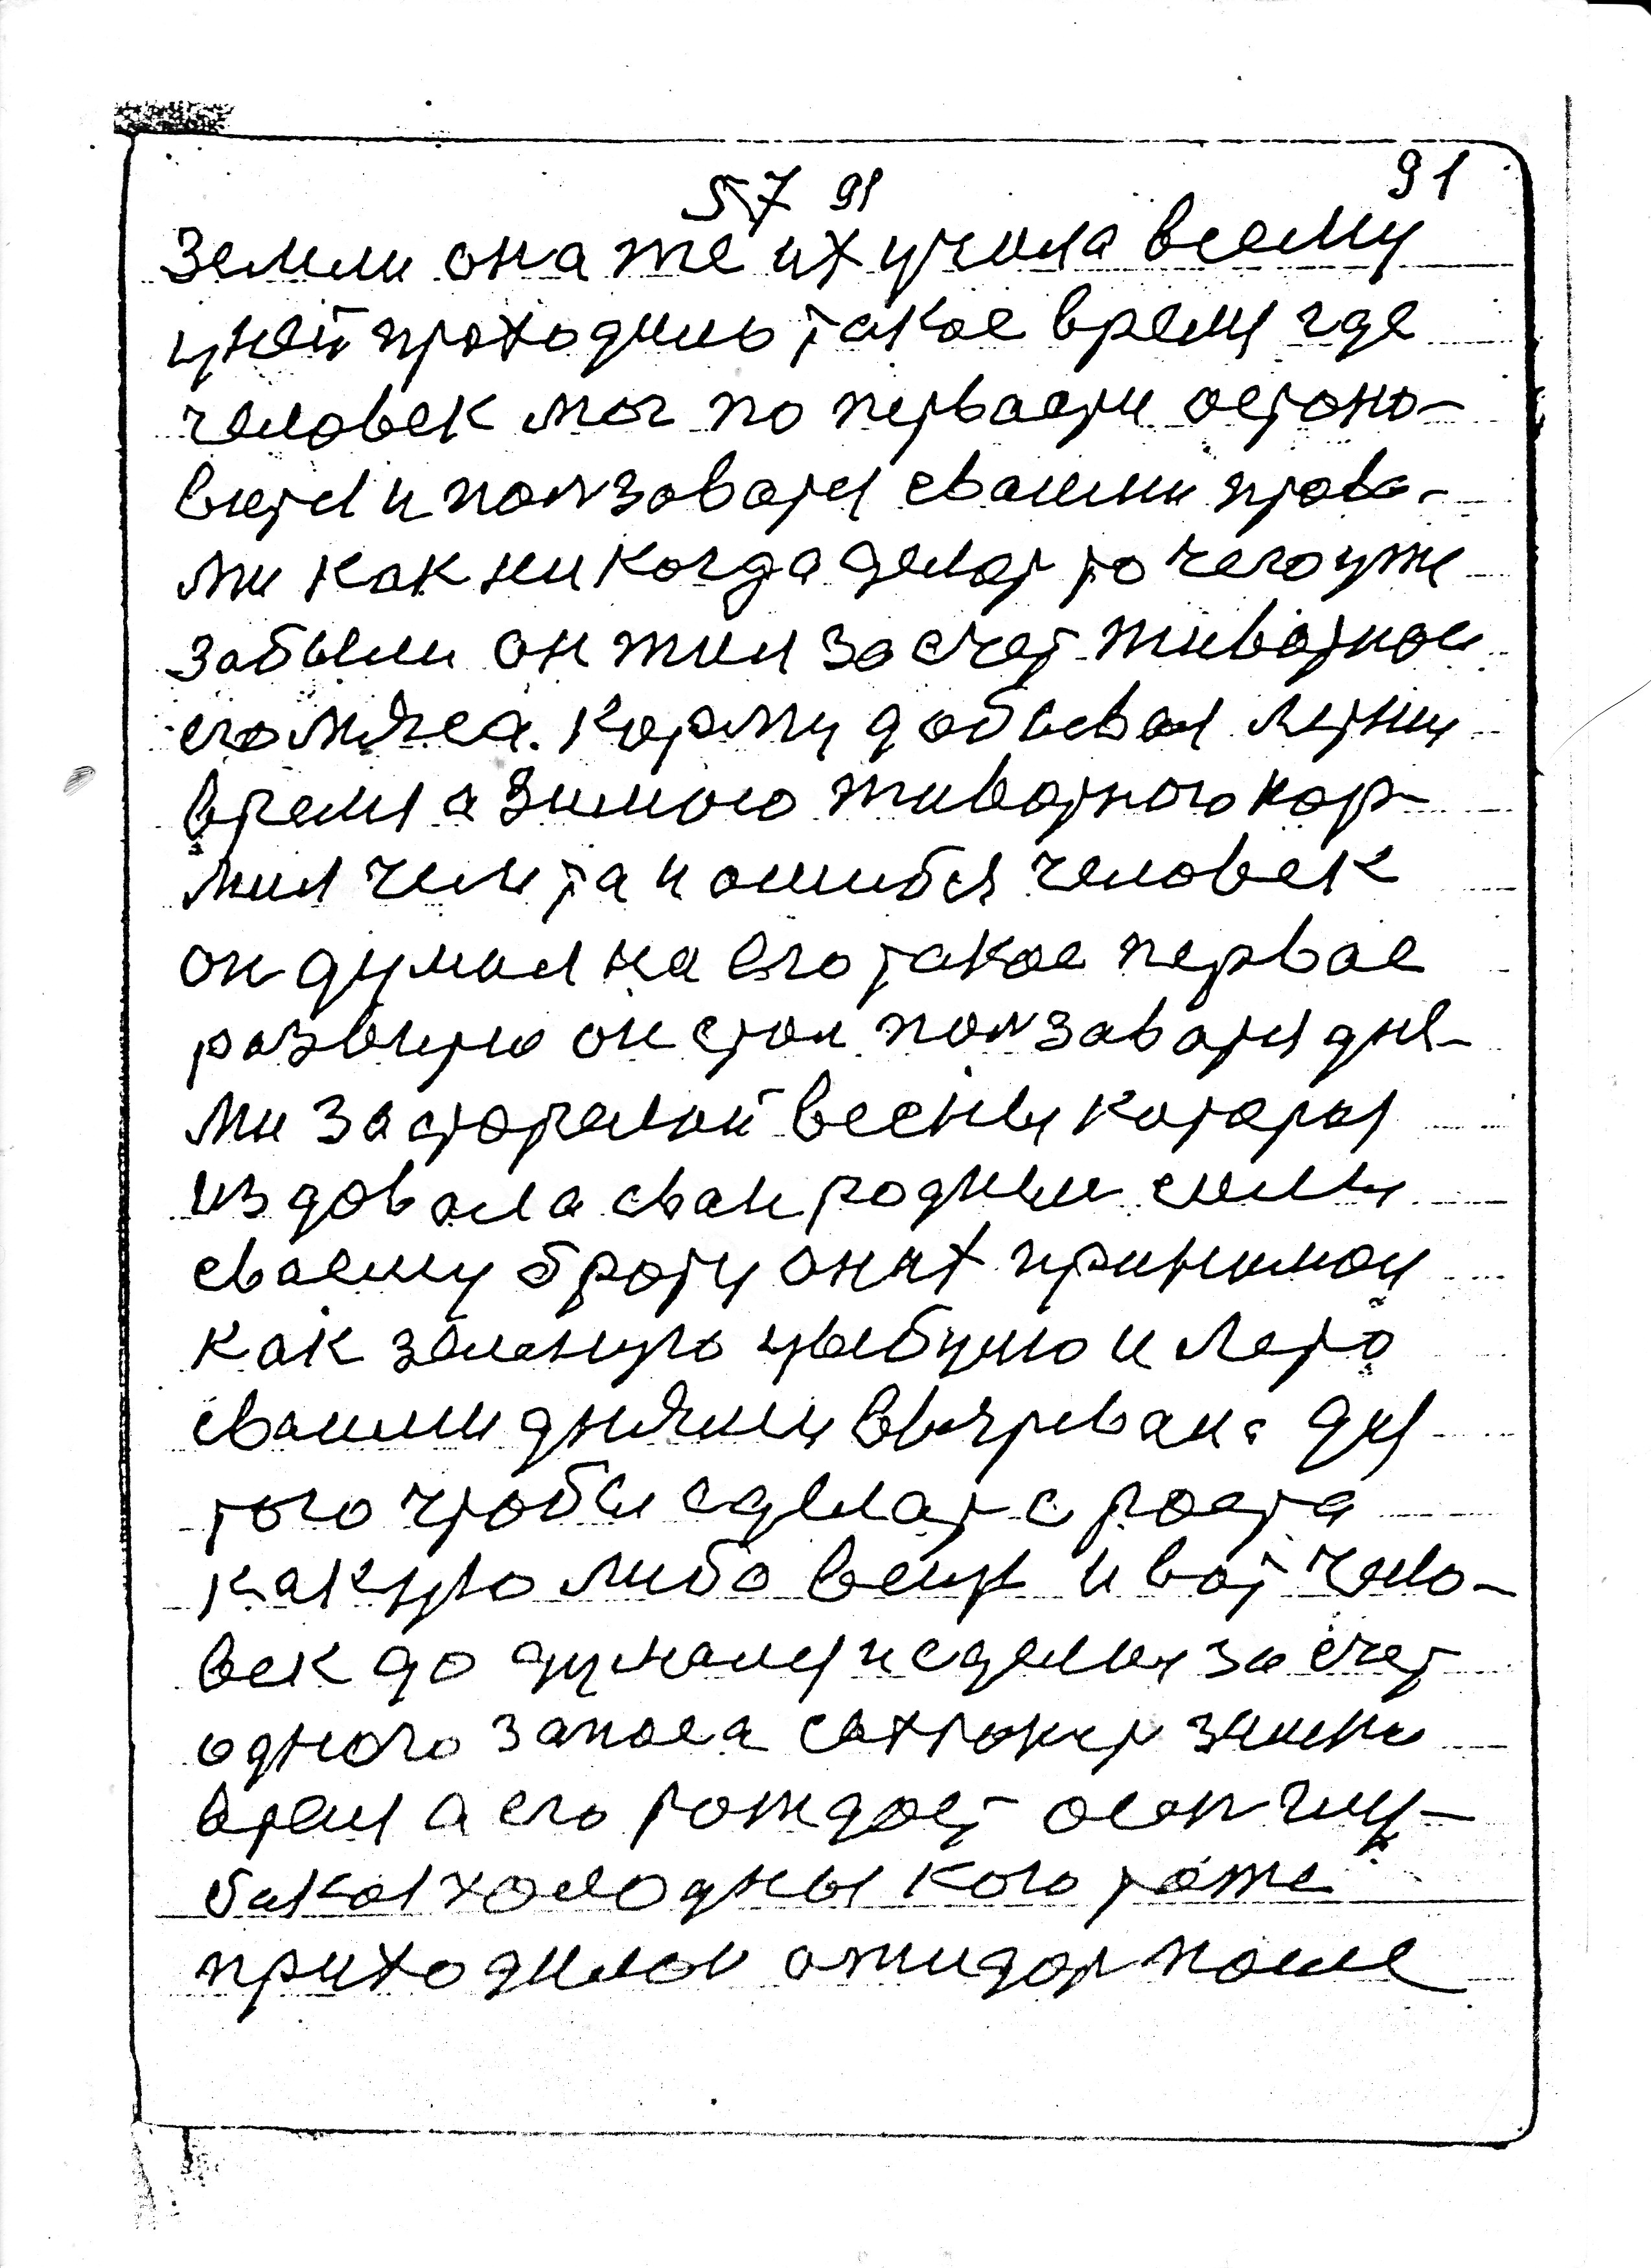 57 91 91
земли она же их учила всему
уней проходило такое время где
человек мог по первасти остоно-
витя и ползоватя сваими прова-
ми как ни когда делат то чего уже
забыли он жил за счет живатнои
го мяса. Корму добывал летни
время а зимою живатного кор-
мил чем та и ошибся человек
он думал на его такое первае
развитию он стал ползаватя дня-
ми за сторалой весны катарая
издовала сваи родныи силы
сваему броту он их принимал
как зеленую и лето
сваими днями для
того чтобы сделат с роста
какую либо вещ и вот чело-
век до и сделал за счет
одного запаса сахронит зимни
время а его рождает осен глу-
бакая холодная кого тоже
приходилос ожидат после